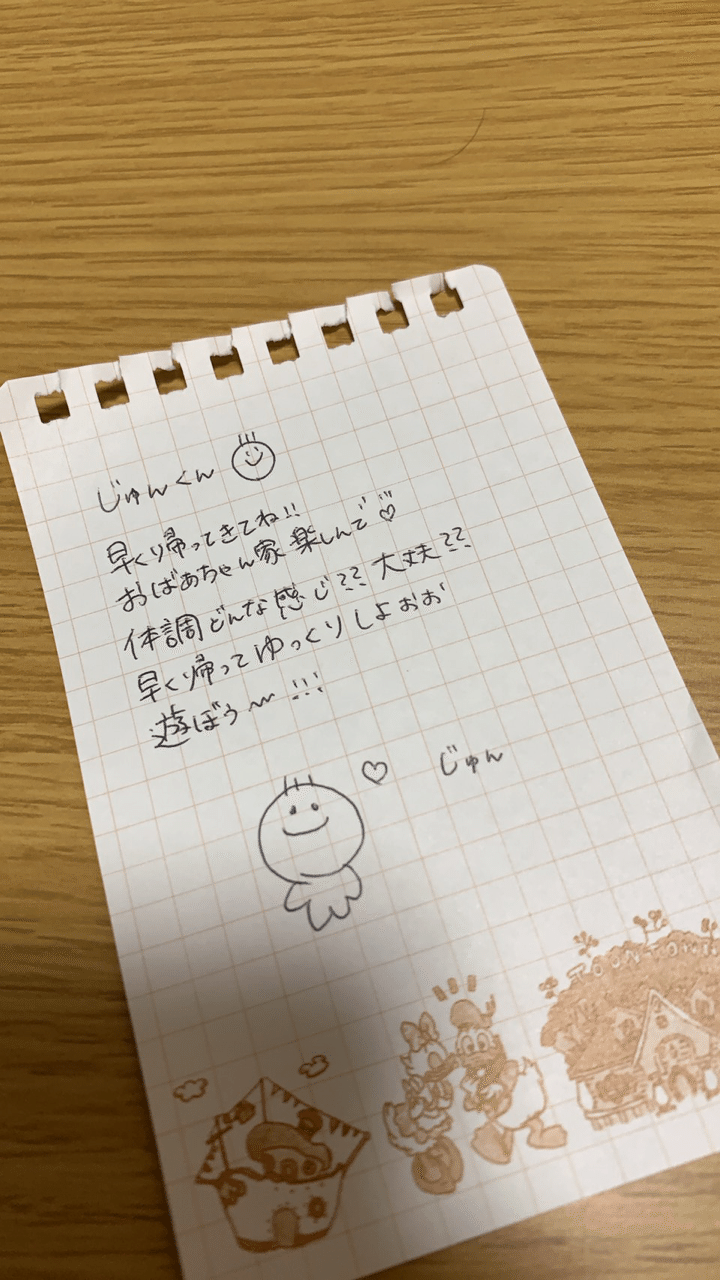 じゅんくん
早く帰ってきてね!!
おばあちゃん家楽しんで♡
体調どんな感じ?? 大丈夫??
早く帰ってゆっくりしよぉぉ
遊ぼう〜!!!
♡ じゅん
TOONTOWN